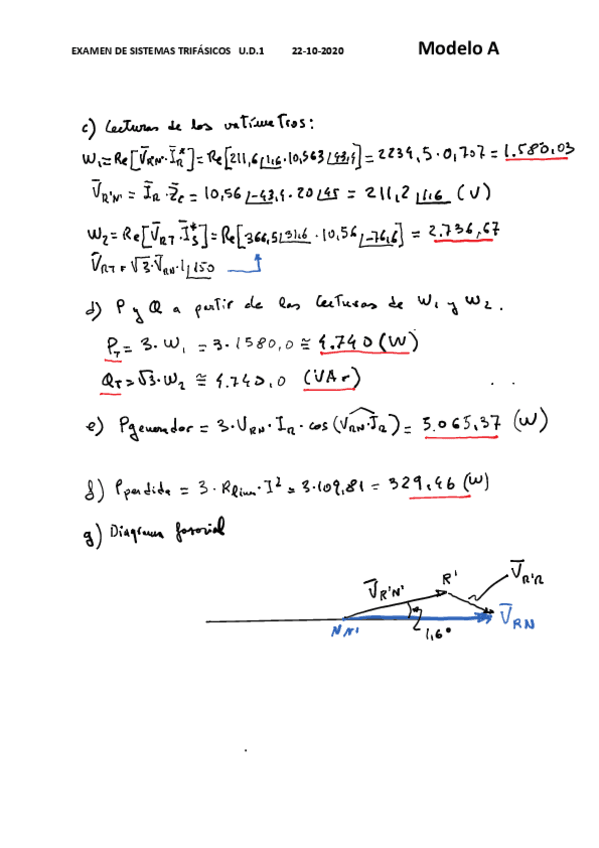 EXAMEN DE SISTEMAS TRIFÁSICOS U.D.1 22-10-2020 Modelo A
c) Lecturas de los vatímetros:
W₁=Re[V̄RN·ĪR*]=Re[211,6∠1,6·10,563∠43,4]=2234,5·0,707=1.580,03
V̄R'N' = ĪR·Z̄c = 10,56∠-43,4·20∠45 = 211,2∠1,6 (V)
W₂=Re[V̄RT·ĪS*]=Re[366,5∠31,6·10,56∠-76,6] = 2.736,67
V̄RT=√3·V̄RN·1∠150
d) P y Q a partir de las lecturas de W₁ y W₂.
PT= 3·W₁ = 3·1580,0≅ 4.740(W)
QT=√3·W₂ ≅ 4.740,0 (VAr)
e) Pgenerador = 3·VRN·IR·cos(VRN·IR)= 5.065,37 (W)
f) Pperdida = 3·Rlinea·I²=3·109,81 = 329,46 (W)
g) Diagrama fasorial
V̄R'N' R' V̄R'R
N N' 1,6° V̄RN